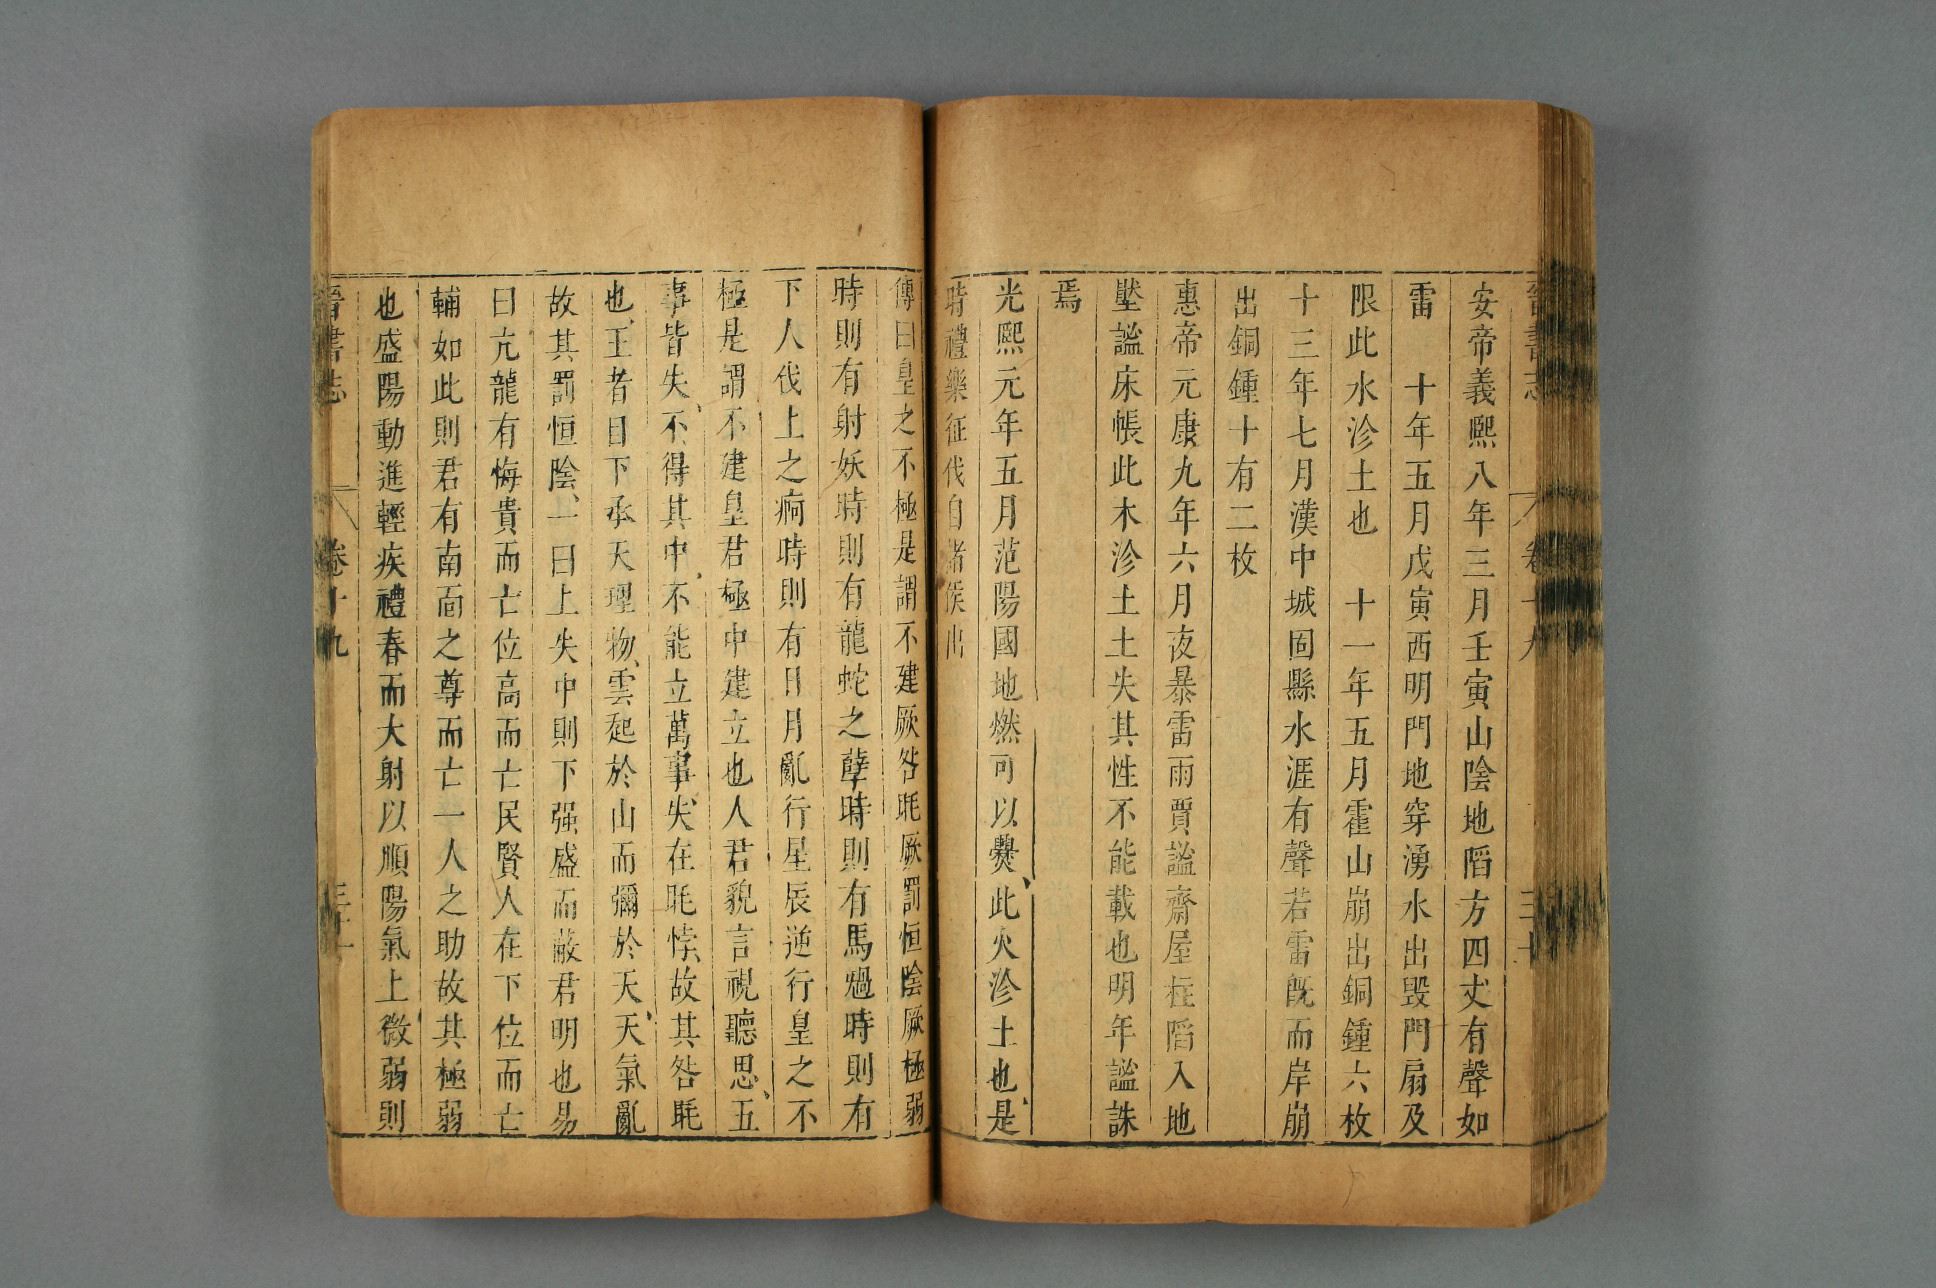 晉書志 卷十九 三十
安帝義熙八年三月壬寅山陰地䧟方四丈有聲如
雷 十年五月戊寅西明門地穿湧水出毀門扇及
限此水沴土也 十一年五月霍山崩出銅鍾六枚
十三年七月漢中城固縣水涯有聲若雷旣而岸崩
出銅鍾十有二枚
惠帝元康九年六月夜暴雷雨賈謐齋屋柱䧟入地
壓謐床帳此木沴土土失其性不能載也明年謐誅
焉
光熙元年五月范陽國地燃可以爨此火沴土也是
時禮樂征伐自諸侯出
傳曰皇之不極是謂不建厥咎眊厥罰恒陰厥極弱
時則有射妖時則有龍蛇之孽時則有馬𥚽時則有
下人伐上之痾時則有日月亂行星辰逆行皇之不
極是謂不建皇君極中建立也人君貌言視聽思五
事皆失不得其中不能立萬事失在眊悖故其咎眊
也王者自下承天理物雲起於山而彌於天天氣亂
故其罰恒陰一曰上失中則下强盛而蔽君明也易
曰亢龍有悔貴而亡位高而亡民賢人在下位而亡
輔如此則君有南面之尊而亡一人之助故其極弱
也盛陽動進輕疾禮春而大射以順陽氣上微弱則
晉書志 卷十九 三十一